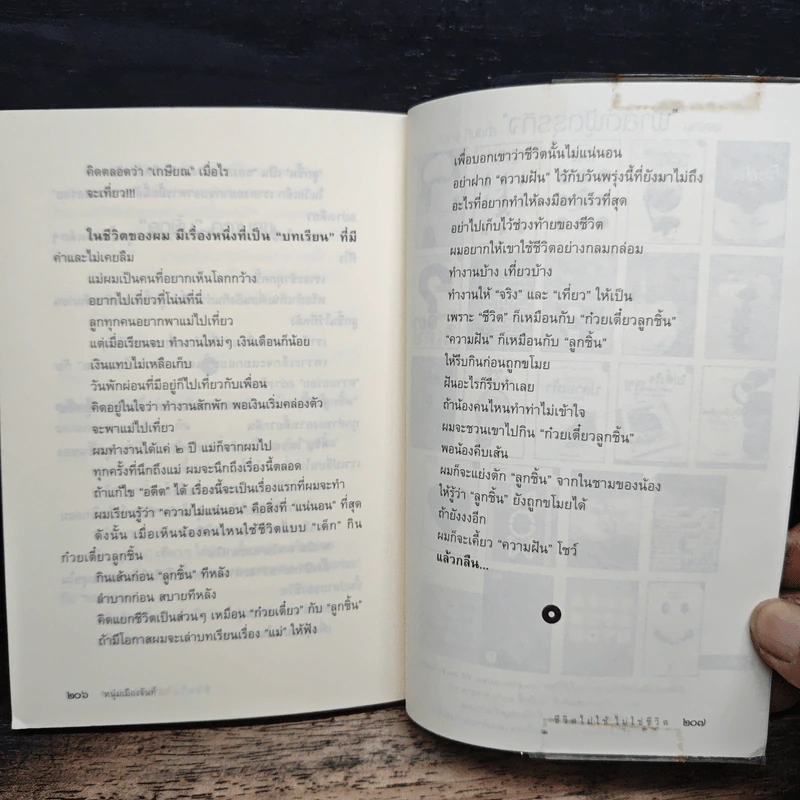 คิดตลอดว่า “เกษียณ” เมื่อไร
จะเที่ยว!!!
ในชีวิตของผม มีเรื่องหนึ่งที่เป็น “บทเรียน” ที่มี
ค่าและไม่เคยลืม
แม่ผมเป็นคนที่อยากเห็นโลกกว้าง
อยากไปเที่ยวที่โน่นที่นี่
ลูกทุกคนอยากพาแม่ไปเที่ยว
แต่เมื่อเรียนจบ ทำงานใหม่ๆ เงินเดือนก็น้อย
เงินแทบไม่เหลือเก็บ
วันพักผ่อนที่มีอยู่ก็ไปเที่ยวกับเพื่อน
คิดอยู่ในใจว่า ทำงานสักพัก พอเงินเริ่มคล่องตัว
จะพาแม่ไปเที่ยว
ผมทำงานได้แค่ ๒ ปี แม่ก็จากผมไป
ทุกครั้งที่นึกถึงแม่ ผมจะนึกถึงเรื่องนี้ตลอด
ถ้าแก้ไข “อดีต” ได้ เรื่องนี้จะเป็นเรื่องแรกที่ผมจะทำ
ผมเรียนรู้ว่า “ความไม่แน่นอน” คือสิ่งที่ “แน่นอน” ที่สุด
ดังนั้น เมื่อเห็นน้องคนไหนใช้ชีวิตแบบ “เด็ก” กิน
ก๋วยเตี๋ยวลูกชิ้น
กินเส้นก่อน “ลูกชิ้น” ทีหลัง
ลำบากก่อน สบายทีหลัง
คิดแยกชีวิตเป็นส่วนๆ เหมือน “ก๋วยเตี๋ยว” กับ “ลูกชิ้น”
ถ้ามีโอกาสผมจะเล่าบทเรียนเรื่อง “แม่” ให้ฟัง
๒๐๖ หนุ่มเมืองจันท์
เพื่อบอกเขาว่าชีวิตนั้นไม่แน่นอน
อย่าฝาก “ความฝัน” ไว้กับวันพรุ่งนี้ที่ยังมาไม่ถึง
อะไรที่อยากทำให้ลงมือทำเร็วที่สุด
อย่าไปเก็บไว้ช่วงท้ายของชีวิต
ผมอยากให้เขาใช้ชีวิตอย่างกลมกล่อม
ทำงานบ้าง เที่ยวบ้าง
ทำงานให้ “จริง” และ “เที่ยว” ให้เป็น
เพราะ “ชีวิต” ก็เหมือนกับ “ก๋วยเตี๋ยวลูกชิ้น”
“ความฝัน” ก็เหมือนกับ “ลูกชิ้น”
ให้รีบกินก่อนถูกขโมย
ฝันอะไรก็รีบทำเลย
ถ้าน้องคนไหนทำท่าไม่เข้าใจ
ผมจะชวนเขาไปกิน “ก๋วยเตี๋ยวลูกชิ้น”
พอน้องคีบเส้น
ผมก็จะแย่งตัก “ลูกชิ้น” จากในชามของน้อง
ให้รู้ว่า “ลูกชิ้น” ยังถูกขโมยได้
ถ้ายังงงอีก
ผมก็จะเคี้ยว “ความฝัน” โชว์
แล้วกลืน...
ชีวิตไม่ใช้ ไม่ใช่ชีวิต ๒๐๗